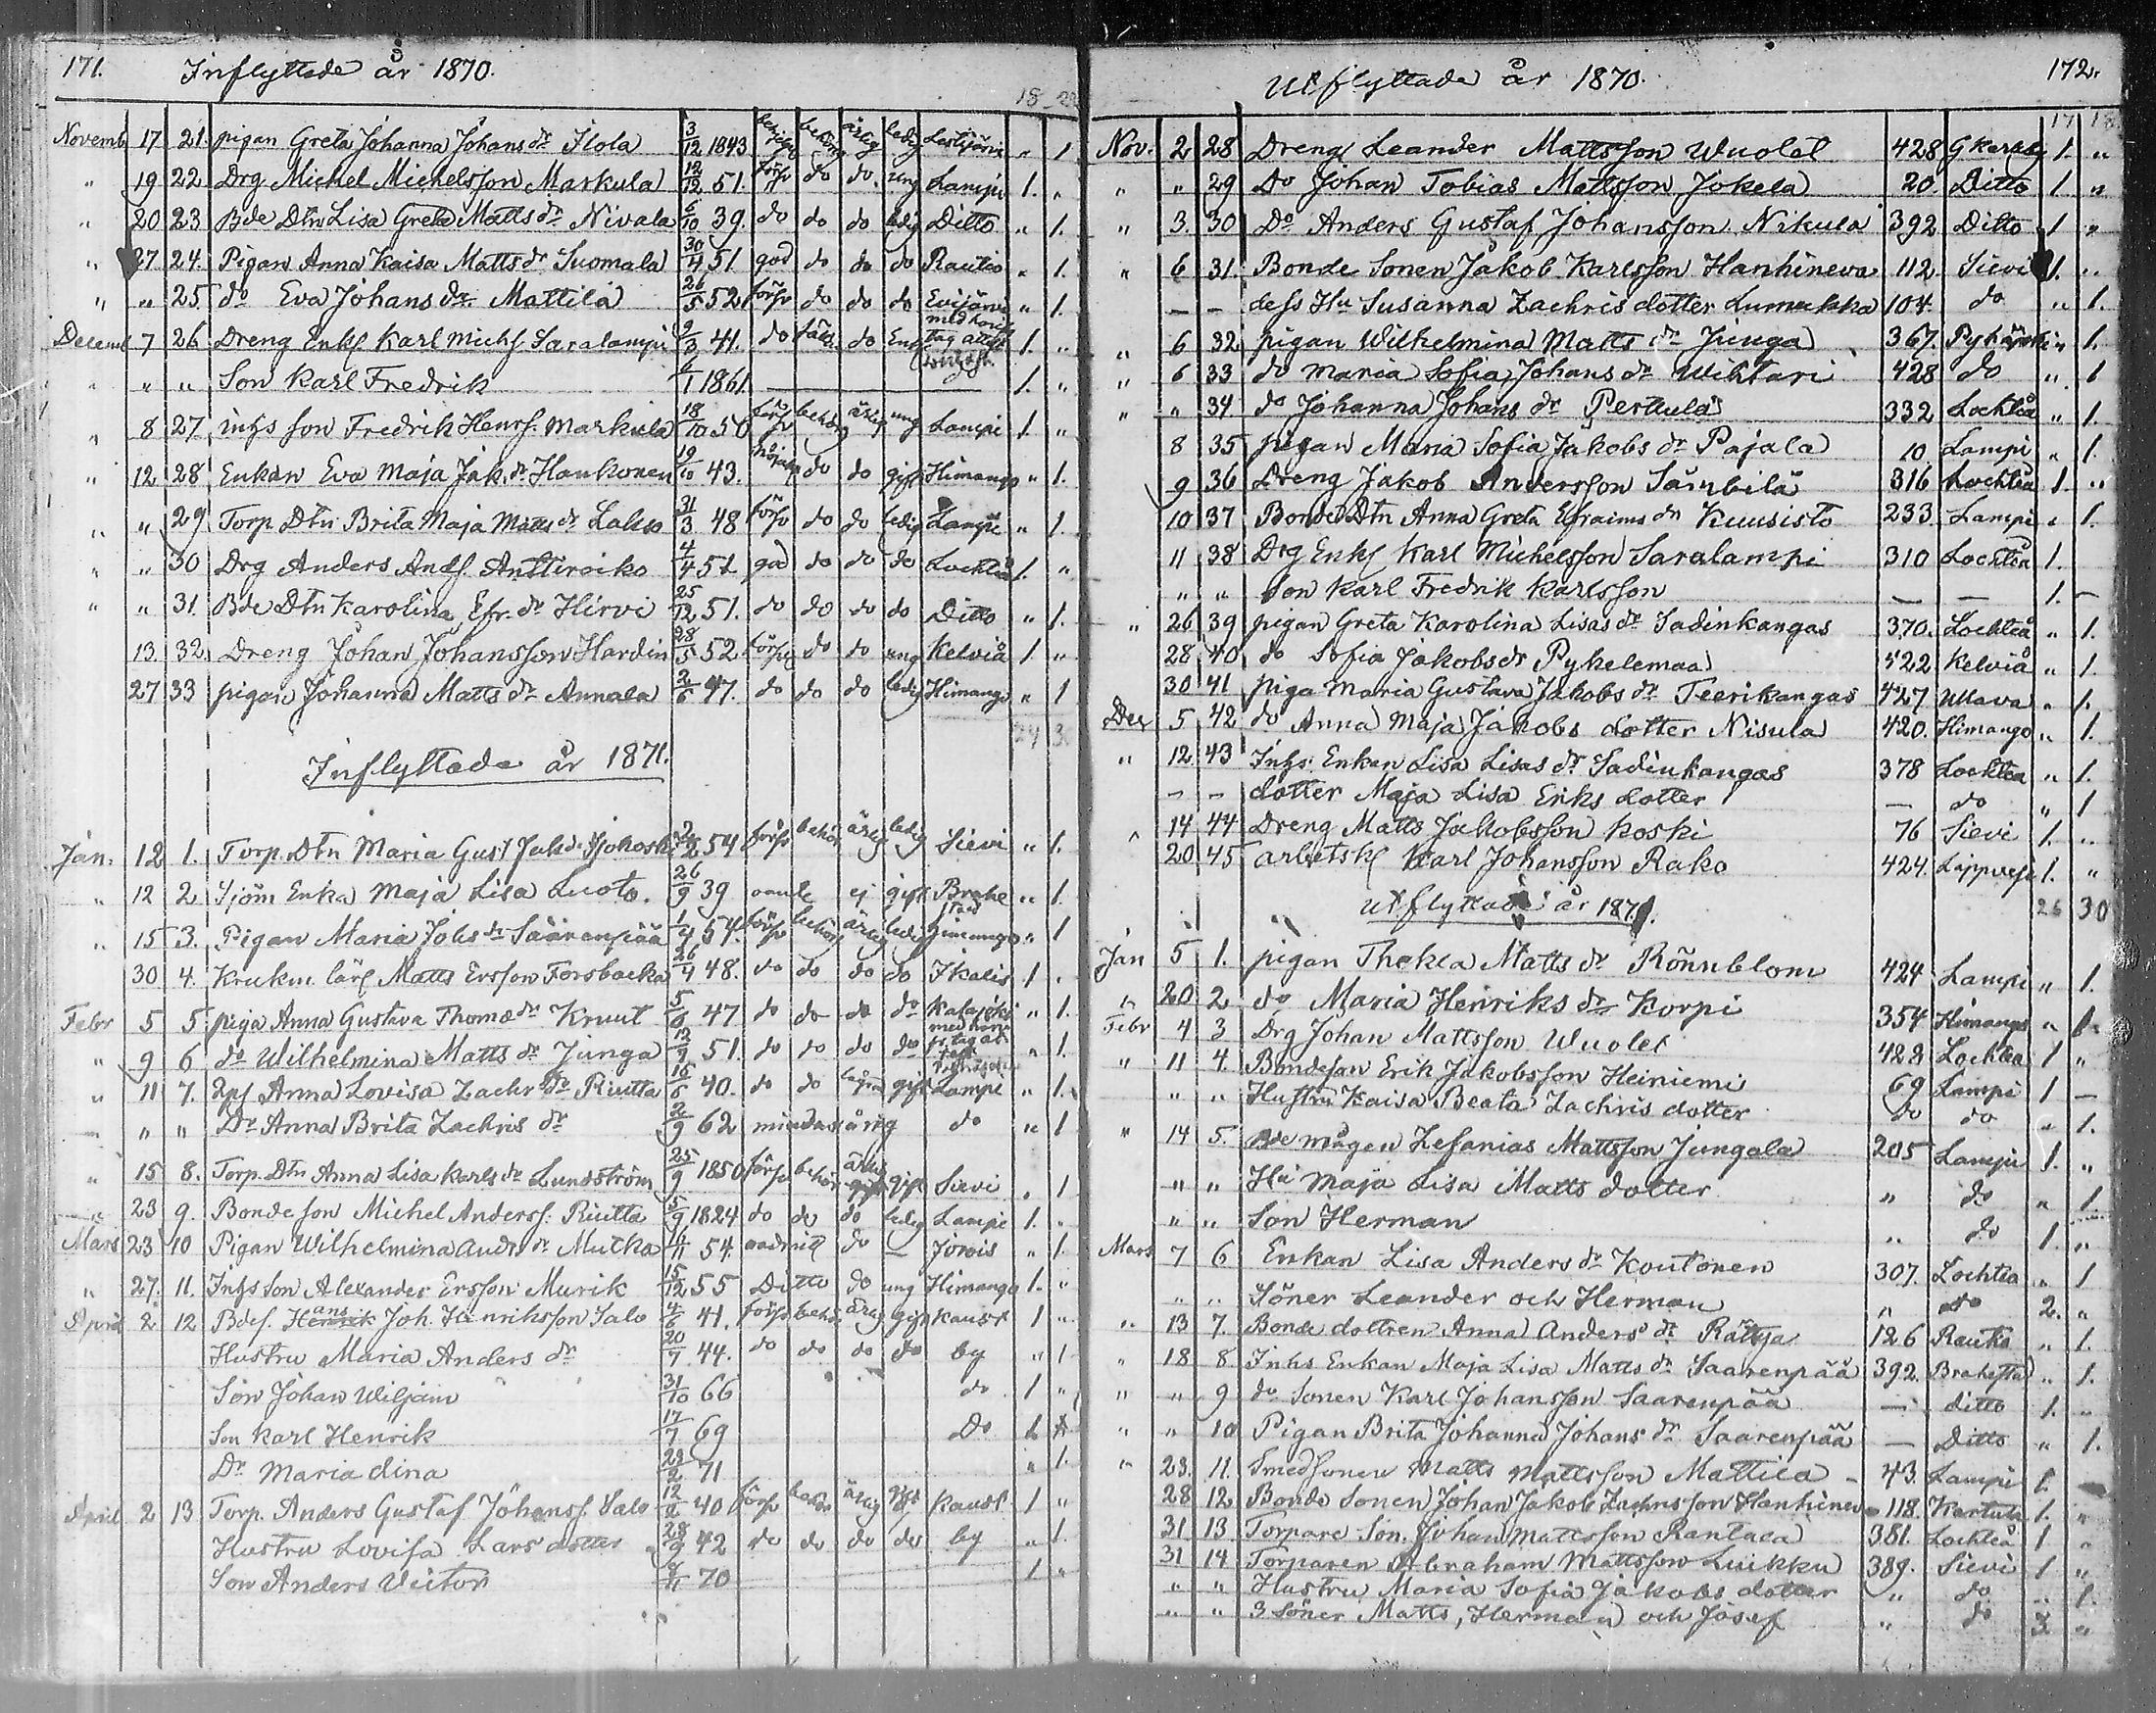 171. Inflyttade år 1870.
18 23
Novemb 17 21. pigan Greta Johanna Johans dr Ilola 3/12 1843 behörig ärlig ledig Lestijärvi " 1
" 19 22 Drg. Michel Michelsson Markula 12/12 51. försv do do. ung Lampi 1. "
" 20 23 Bde Dtn Lisa Greta Matts dr Nivala 6/10 39. do do do ledig Ditto " 1.
" 27 24. Pigan Anna Kaisa Matts dr Suomala 30/4 51 god do do do Rautio " 1.
" " 25. do Eva Johans dr Mattila 26/5 52 försv do do do Evijärvi " 1.
Decemb 7 26 Dreng Enkl Karl Michs Saralampi 9/3 41. do do Enkl 1. "
" " " Son Karl Fredrik /1 1861. 1. "
" 8 27 inhs son Fredrik Henrs. Markula 18/10 50 försv behörig ärlig ung Lampi 1. "
" 12 28 Enkan Eva Maja Jak. dr Hankonen 19/10 43. nöjakt do do gift Himango " 1.
" " 29 Torp. Dtn Brita Maja Matts dr Lakso 31/3 48 försv do do ledig Lampi " 1.
" " 30 Drg Anders Ands. Anttiroiko 4/4 51. god do do do Lochteå 1. "
" " 31. Bde Dtn Karolina Efr. dr Hirvi 25/12 51. do do do do Ditto " 1.
13. 32. Dreng Johan Johansson Hardin 28/5 52 försv do do ung Kelviå 1. "
27 33 pigan Johanna Matts dr Annala 2/6 47. do do do ledig Himango " 1
24 3
Inflyttade år 1871.
Jan. 12 1. Torp. Dtn Maria Gust Jak. 2/2 54 försv behör ärlig ledig Sievi " 1.
" 12 2. Sjöm Enka Maja Lisa Luoto. 26/9 39 ej gift Brahestad " 1.
" 15 3. Pigan Maria Johs dr Säärenpää 1/4 54. försv behörig ärlig ledig Himango " 1
30 4. Krukm. lärl Matts Ersson Forsbacka 26/4 48. do do do do Ikalis 1 "
Febr 5 5 piga Anna Gustava Thomæ dr Knuut 5/6 47 do do do do Kalajoki " 1.
" 9 6 do Wilhelmina Matts dr Junga 12/9 51. do do do do " 1.
" 11 7. Anna Lovisa Zachr dr Riutta 16/6 40. do do gift Lampi " 1.
" " Dr Anna Brita Zachris dr 2/9 62 mindas årig do " 1
" 15 8. Torp. Dtn Anna Lisa Karls dr Lundström 25/9 1850 försv behör ärlig gift Sievi " 1
" 23 9. Bondeson Michel Anderss. Riutta 5/9 1824 do do do ledig Lampi 1. "
Mars 23 10 Pigan Wilhelmina Andr. dr Mutka 16/11 54. do – " 1.
" 27. 11. Inhs Son Alexander Ersson Murik 15/12 55 Ditto do ung Himango 1. "
April 2 12 Bdes. Hans Joh. Henriksson Salo 4/6 41. försv behör ärlig gift Kaust 1 "
Hustru Maria Anders dr 20/7 44. do do do do by " 1
Son Johan Wiljam 31/10 66 do 1 "
Son Karl Henrik 17/7 69 Do 1
Dr Maria dina 23/2 71 " 1.
April 2 13 Torp. Anders Gustaf Johanss. Salo 12/2 40 försv behör ärlig gift Kaust 1 "
Hustru Lovisa Lars dotter 28/9 42 do do do do by " 1.
Son Anders Victor /11 70 1 "
Utflyttade år 1870. 172.
17 18
Nov. 2 28 Dreng Leander Mattsson Wuolet 428 Gkarleby 1. "
" " 29 Do Johan Tobias Mattsson Jokela 20. Ditto 1 "
" 3. 30 Do Anders Gustaf Johansson Nikula 392 Ditto 1 "
" 6 31. Bonde Sonen Jakob Karlsson Hanhineva 112. Sievi 1. "
– – dess Hu Susanna Zachris dotter Lumukka 104. do " 1.
" 6 32 pigan Wilhelmina Matts dr Junga 367. Pyhäjoki " 1.
" 6 33 do Maria Sofia Johans dr Wiktari 428 do " 1
" " 34 do Johanna Johans dr Perttula 332 Lochteå " 1.
8 35 pigan Maria Sofia Jakobs dr Pajala 10 Lampi " 1.
9 36 Dreng Jakob Andersson Särubilä 316 Lochteå 1. "
10 37 Bonde Dtn Anna Greta Efraims dr Kuusisto 233. Lampi " 1.
11 38 Drg Enkl Karl Michelsson Saralampi 310 Lochteå 1.
" " Son Karl Fredrik Karlsson – – 1. –
" 26 39 pigan Greta Karolina Lisas dr Sadinkangas 370. Lochteå " 1.
28 40 do Sofia Jakobs dr Pykelemaa 522 Kelviå " 1.
30 41 piga Maria Gustava Jakobs dr Teerikangas 427 Ullava " 1.
Dec 5 42 do Anna Maja Jakobs dotter Nisula 420. Himango " 1.
" 12. 43 Inhs: Enkan Lisa Lisas dr Sadinkangas 378 Lochteå " 1.
– – dotter Maja Lisa Eriks dotter – do " 1
" 14 44 Dreng Matts Jakobsson Koski 76 Sievi 1. "
20 45 arbetsk Karl Johansson Rako 424. Lappvesi 1. "
Utflyttade år 1871. 26 30
Jan 5 1. pigan Thekla Matts dr Rönnblom 424 Lampi " 1.
" 20 2 do Maria Henriks dr Korpi 354 Himango " 1.
Febr 4 3 Drg Johan Mattsson Wuolet 428 Lochteå 1 "
" 11 4. Bondeson Erik Jakobsson Heiniemi 69 Lampi 1 –
" " Hustru Kaisa Beata Zachris dotter do do " 1.
" 14 5. Bde mågen Zefanias Mattsson Jungala 205 Lampi 1. "
" " Hu Maja Lisa Matts dotter " do " 1.
" " Son Herman " do 1. "
Mars 7 6 Enkan Lisa Anders dr Koutonen 307. Lochteå " 1
" " Söner Leander och Herman " do 2. "
" 13 7. Bonde dottren Anna Anders dr Rättyä 126 Rautio " 1.
" 18 8 Inhs Enkan Maja Lisa Matts dr Saarenpää 392. Brahesta " 1.
" " 9 do Sonen Karl Johansson Saarenpää – ditto 1. "
" " 10 Pigan Brita Johanna Johans dr Saarenpää – Ditto " 1.
" 23. 11. Smedsonen Matts Mattsson Mattila – 43. Lampi 1.
28 12 Bonde Sonen Johan Jakob Zachrisson Hanhineva 118. Karttula 1. "
31 13 Torpare Son. Johan Mattsson Rantala 381. Lochteå 1 "
31 14 Torparen Abraham Mattsson Luikku 389. Sievi 1 "
" " Hustru Maria Sofia Jakobs dotter " do " 1.
" " 3 Söner Matts, Herman och Josef " do 3 "